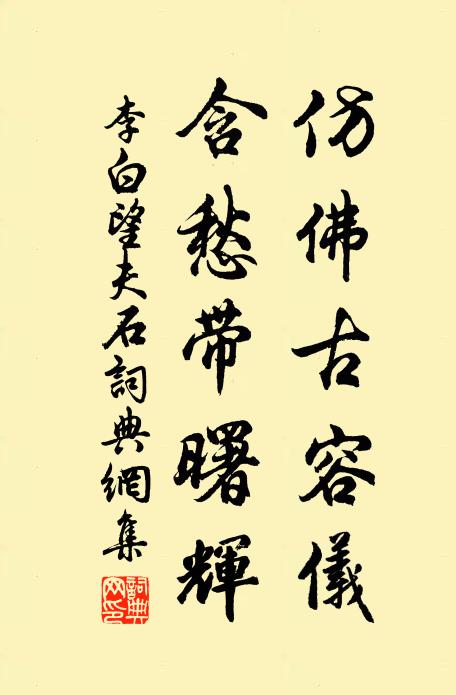 仿佛古容儀
含愁带曙輝
李白望夫石詞典網集
詞典網印